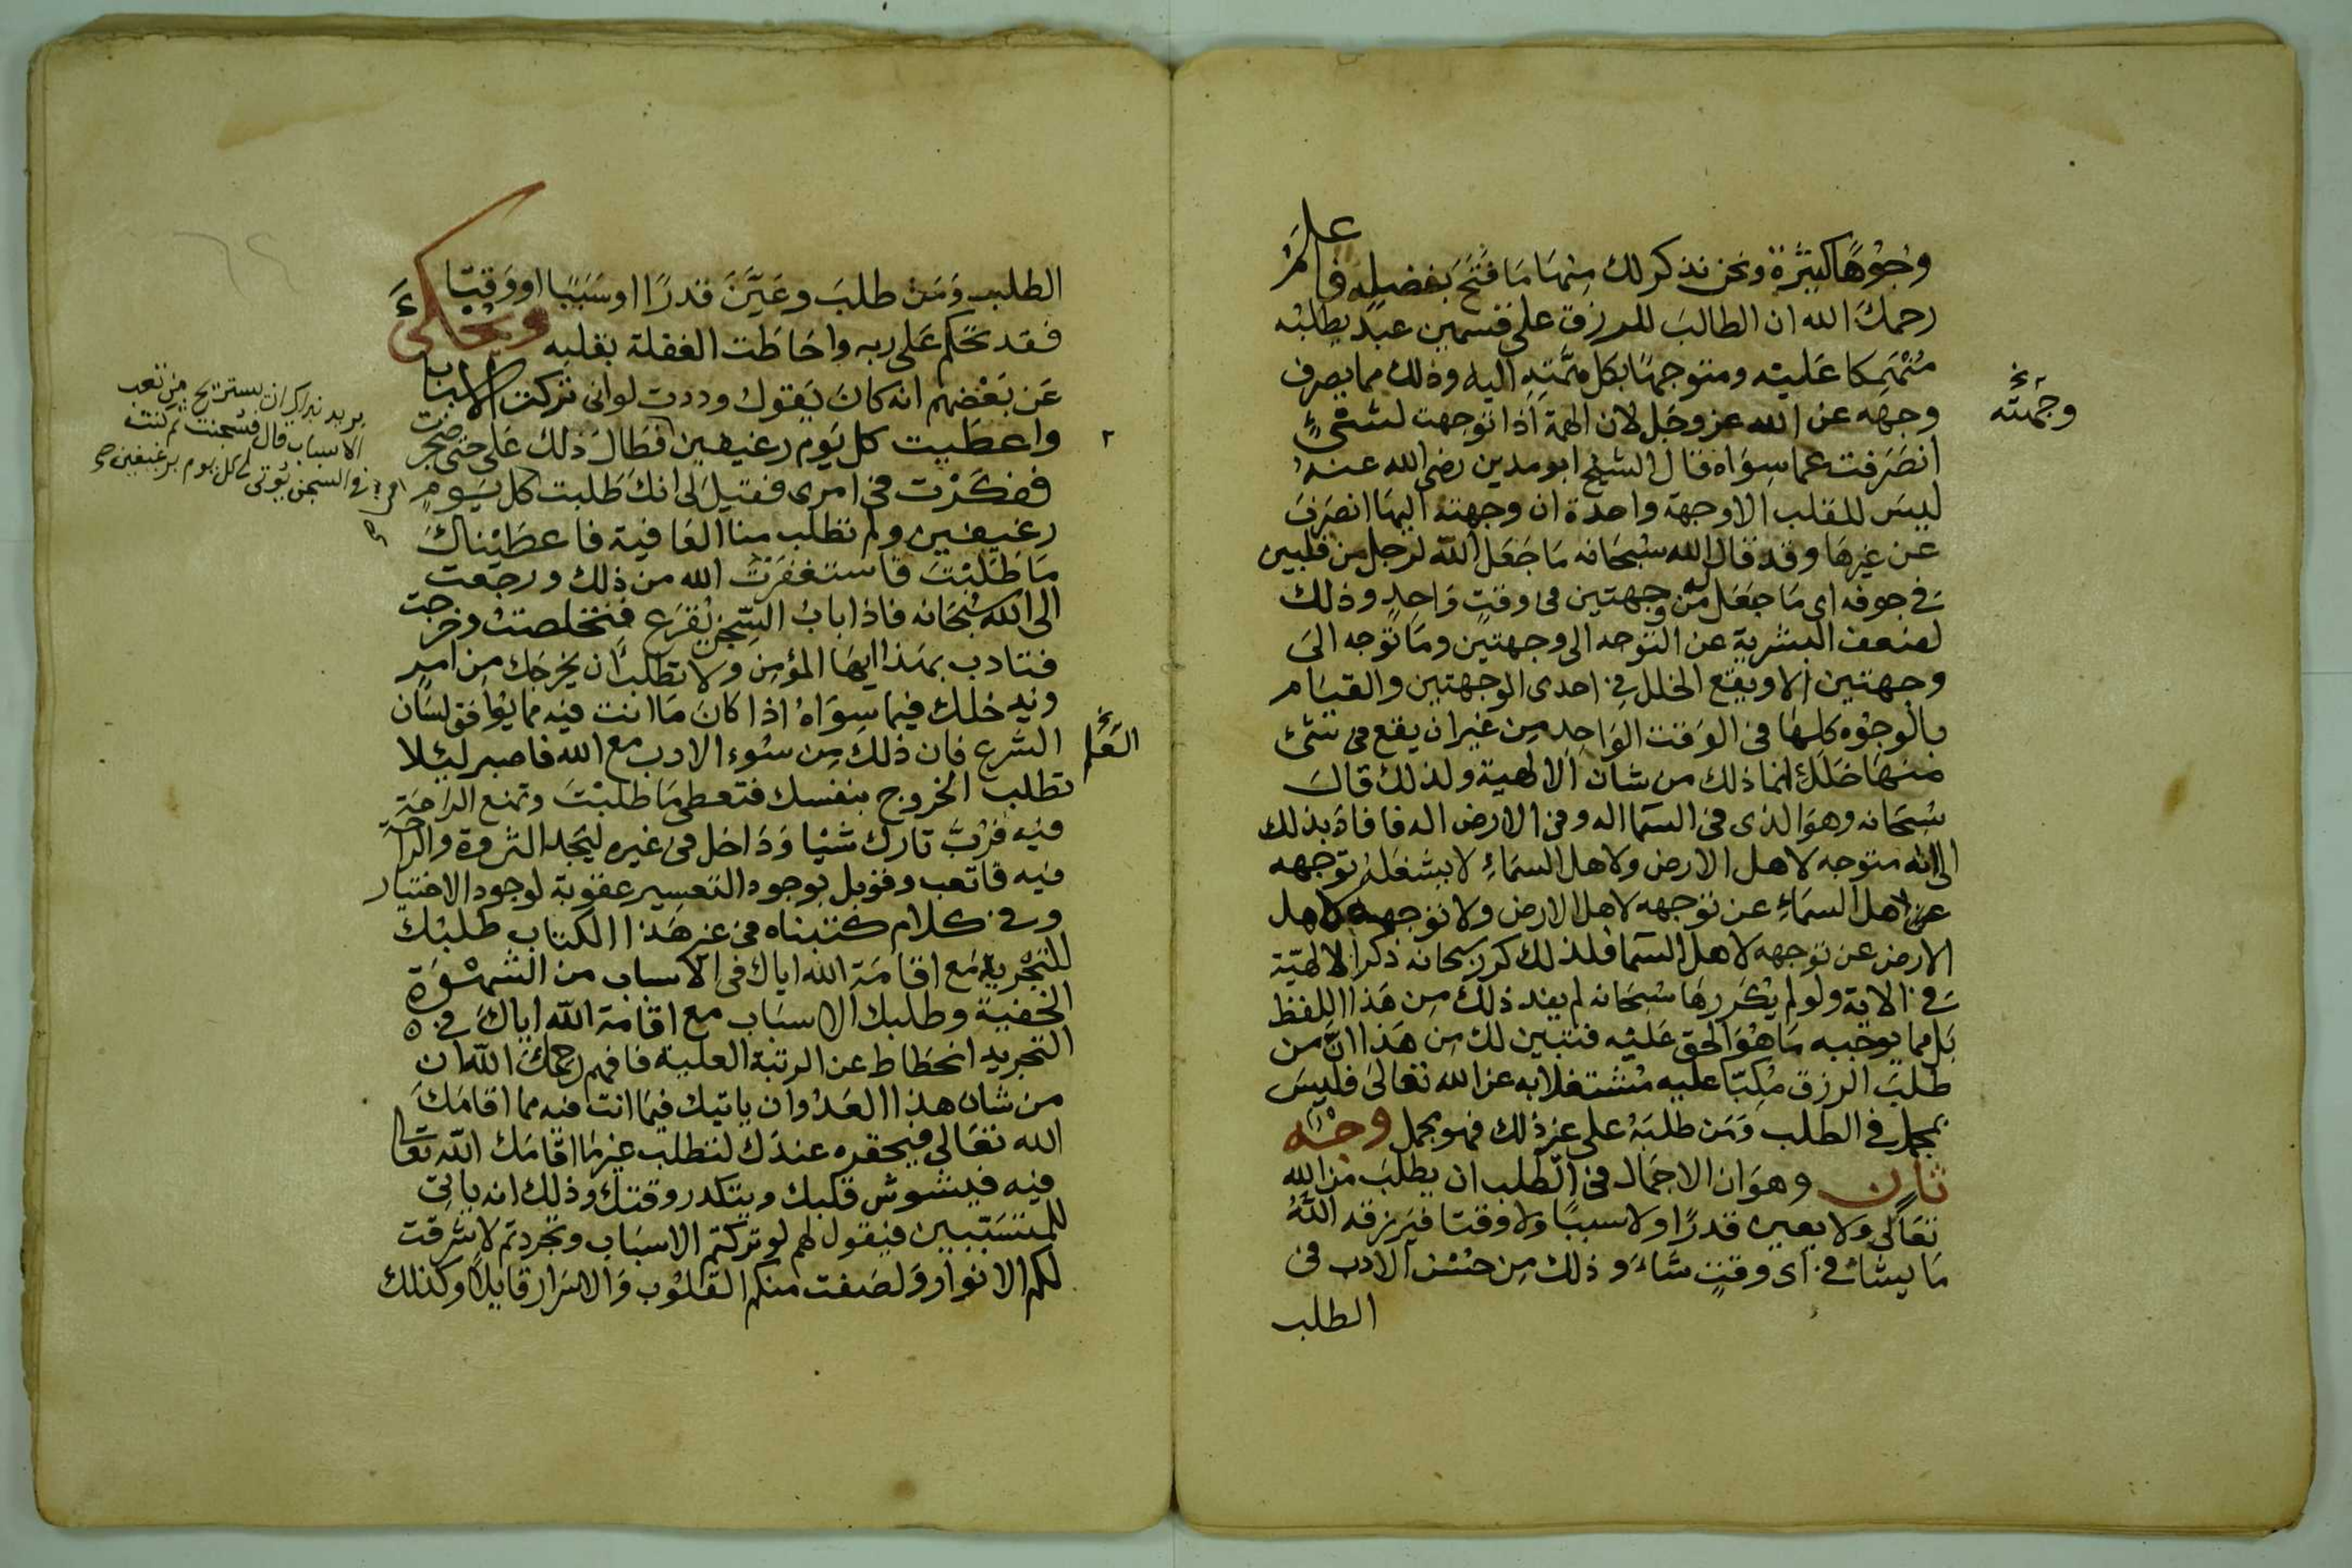 وجوها كثيرة ونحن نذكر لك منها ما فتح بفضله فاعلم
رحمك الله ان الطالب للرزق على قسمين عبد يطلبه
منهمكا عليه ومتوجها بكل همته اليه وذلك مما يصرف
وجهه عن الله عز وجل لان الهمة اذا توجهت لشىء
انصرفت عما سواه قال الشيخ ابو مدين رضى الله عنه
ليس للقلب الا وجهة واحدة ان وجهته اليها انصرف
عن غيرها وقد قال الله سبحانه ما جعل الله لرجل من قلبين
فى جوفه اى ما جعل له من وجهتين فى وقت واحد وذلك
لضعف البشرية عن التوجه الى وجهتين وما توجه الى
وجهتين الا ويقع الخلل فى احدى الوجهتين والقيام
بالوجوه كلها فى الوقت الواحد من غير ان يقع فى شئ
منها خلل انما ذلك من شان الالهية ولذلك قال
سبحانه وهو الذى فى السما اله وفى الارض اله فافاد بذلك
انه متوجه لاهل الارض ولاهل السماء لا يشغله توجهه
الى اهل السماء عن توجهه لاهل الارض ولا توجهه لاهل
الارض عن توجهه لاهل السما فلذلك كرر سبحانه ذكر الالهية
فى الاية ولو لم يكررها سبحانه لم يفد ذلك من هذا اللفظ
بل مما يوجبه ما هو الحق عليه فتبين لك من هذا ان من
طلب الرزق مكبا عليه مشتغلا به عن الله تعالى فليس
بمجمل فى الطلب ومن طلبه على غير ذلك فهو مجمل وجه
ثان وهو ان الاجمال فى الطلب ان يطلب من الله
تعالى ولا يعين قدرا ولا سببا ولا وقتا فيرزقه الله
ما يشاء فى اى وقت شاء وذلك من حسن الادب فى
الطلب
وجهته
الطلب ومن طلب وعين قدرا او سببا او وقتا
فقد تحكم على ربه واحاطت الغفلة بقلبه ويحكى
عن بعضهم انه كان يقول وددت لو انى تركت الاسباب
واعطيت كل يوم رغيفين فطال ذلك على حتى ضجرت
ففكرت فى امرى فقيل لى انك طلبت كل يوم
رغيفين ولم تطلب منا العافية فاعطيناك
ما طلبت فاستغفرت الله من ذلك ورجعت
الى الله سبحانه فاذا باب السجن يقرع فتخلصت وخرجت
فتادب بهذا ايها المؤمن ولا تطلب ان يخرجك من امر
ويدخلك فيما سواه اذا كان ما انت فيه مما يوافق لسان
الشرع فان ذلك من سوء الادب مع الله فاصبر ليلا
تطلب الخروج بنفسك فتعطى ما طلبت وتمنع الراحة
فيه فرب تارك شيا وداخل فى غيره ليجد الثروة والراحة
فيه فاتعب وقوبل بوجود التعسير عقوبة لوجود الاختيار
وفى كلام كتبناه فى غير هذا الكتاب طلبك
للتجريد مع اقامة الله اياك فى الاسباب من الشهوة
الخفية وطلبك الاسباب مع اقامة الله اياك فى
التجريد انحطاط عن الرتبة العلية فافهم رحمك الله ان
من شان هذا العدو ان ياتيك فيما انت فيه مما اقامك
الله تعالى فيحقره عندك لتطلب غير ما اقامك الله تعالى
فيه فيشوش قلبك ويتكدر وقتك وذلك انه ياتى
للمتسببين فيقول لهم لو تركتم الاسباب وتجردتم لاشرقت
لكم الانوار ولصفت منكم القلوب والاسرار قايلا وكذلك
يريد بذلك ان يستريح من تعب
الاسباب قال فسجنت ثم كنت
فى السجن يؤتى لى كل يوم برغيفين صح